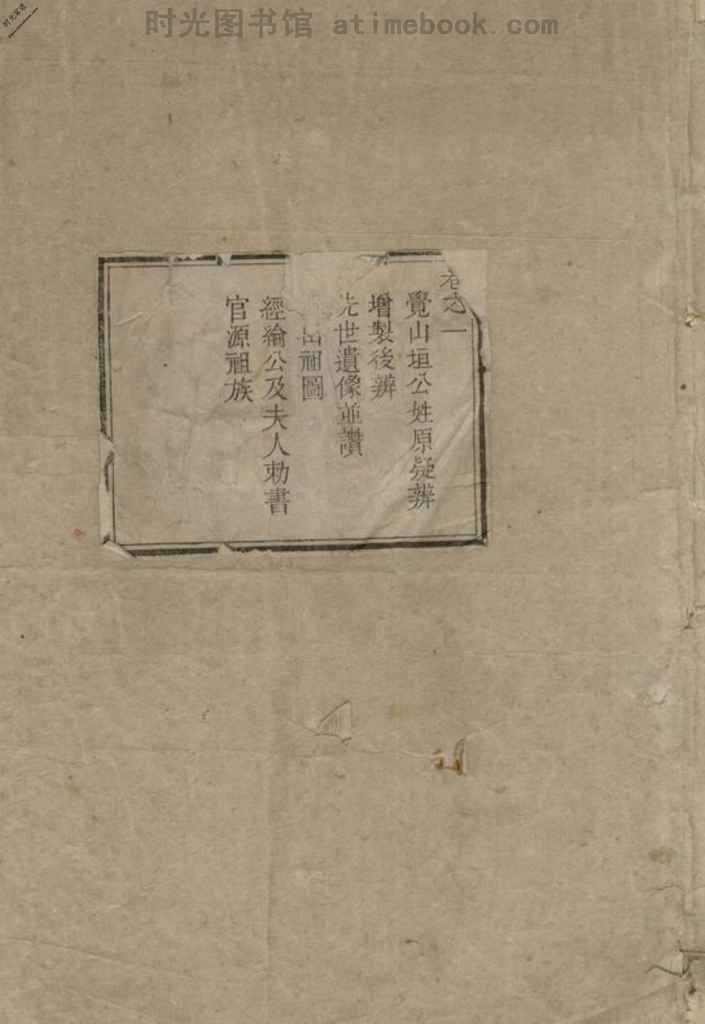 时光图书馆 atimebook.com
卷之一
覺山垣公姓原疑辨
增製後辨
先世遺像並讚
祖圖
經綸公及夫人勅書
官源祖族